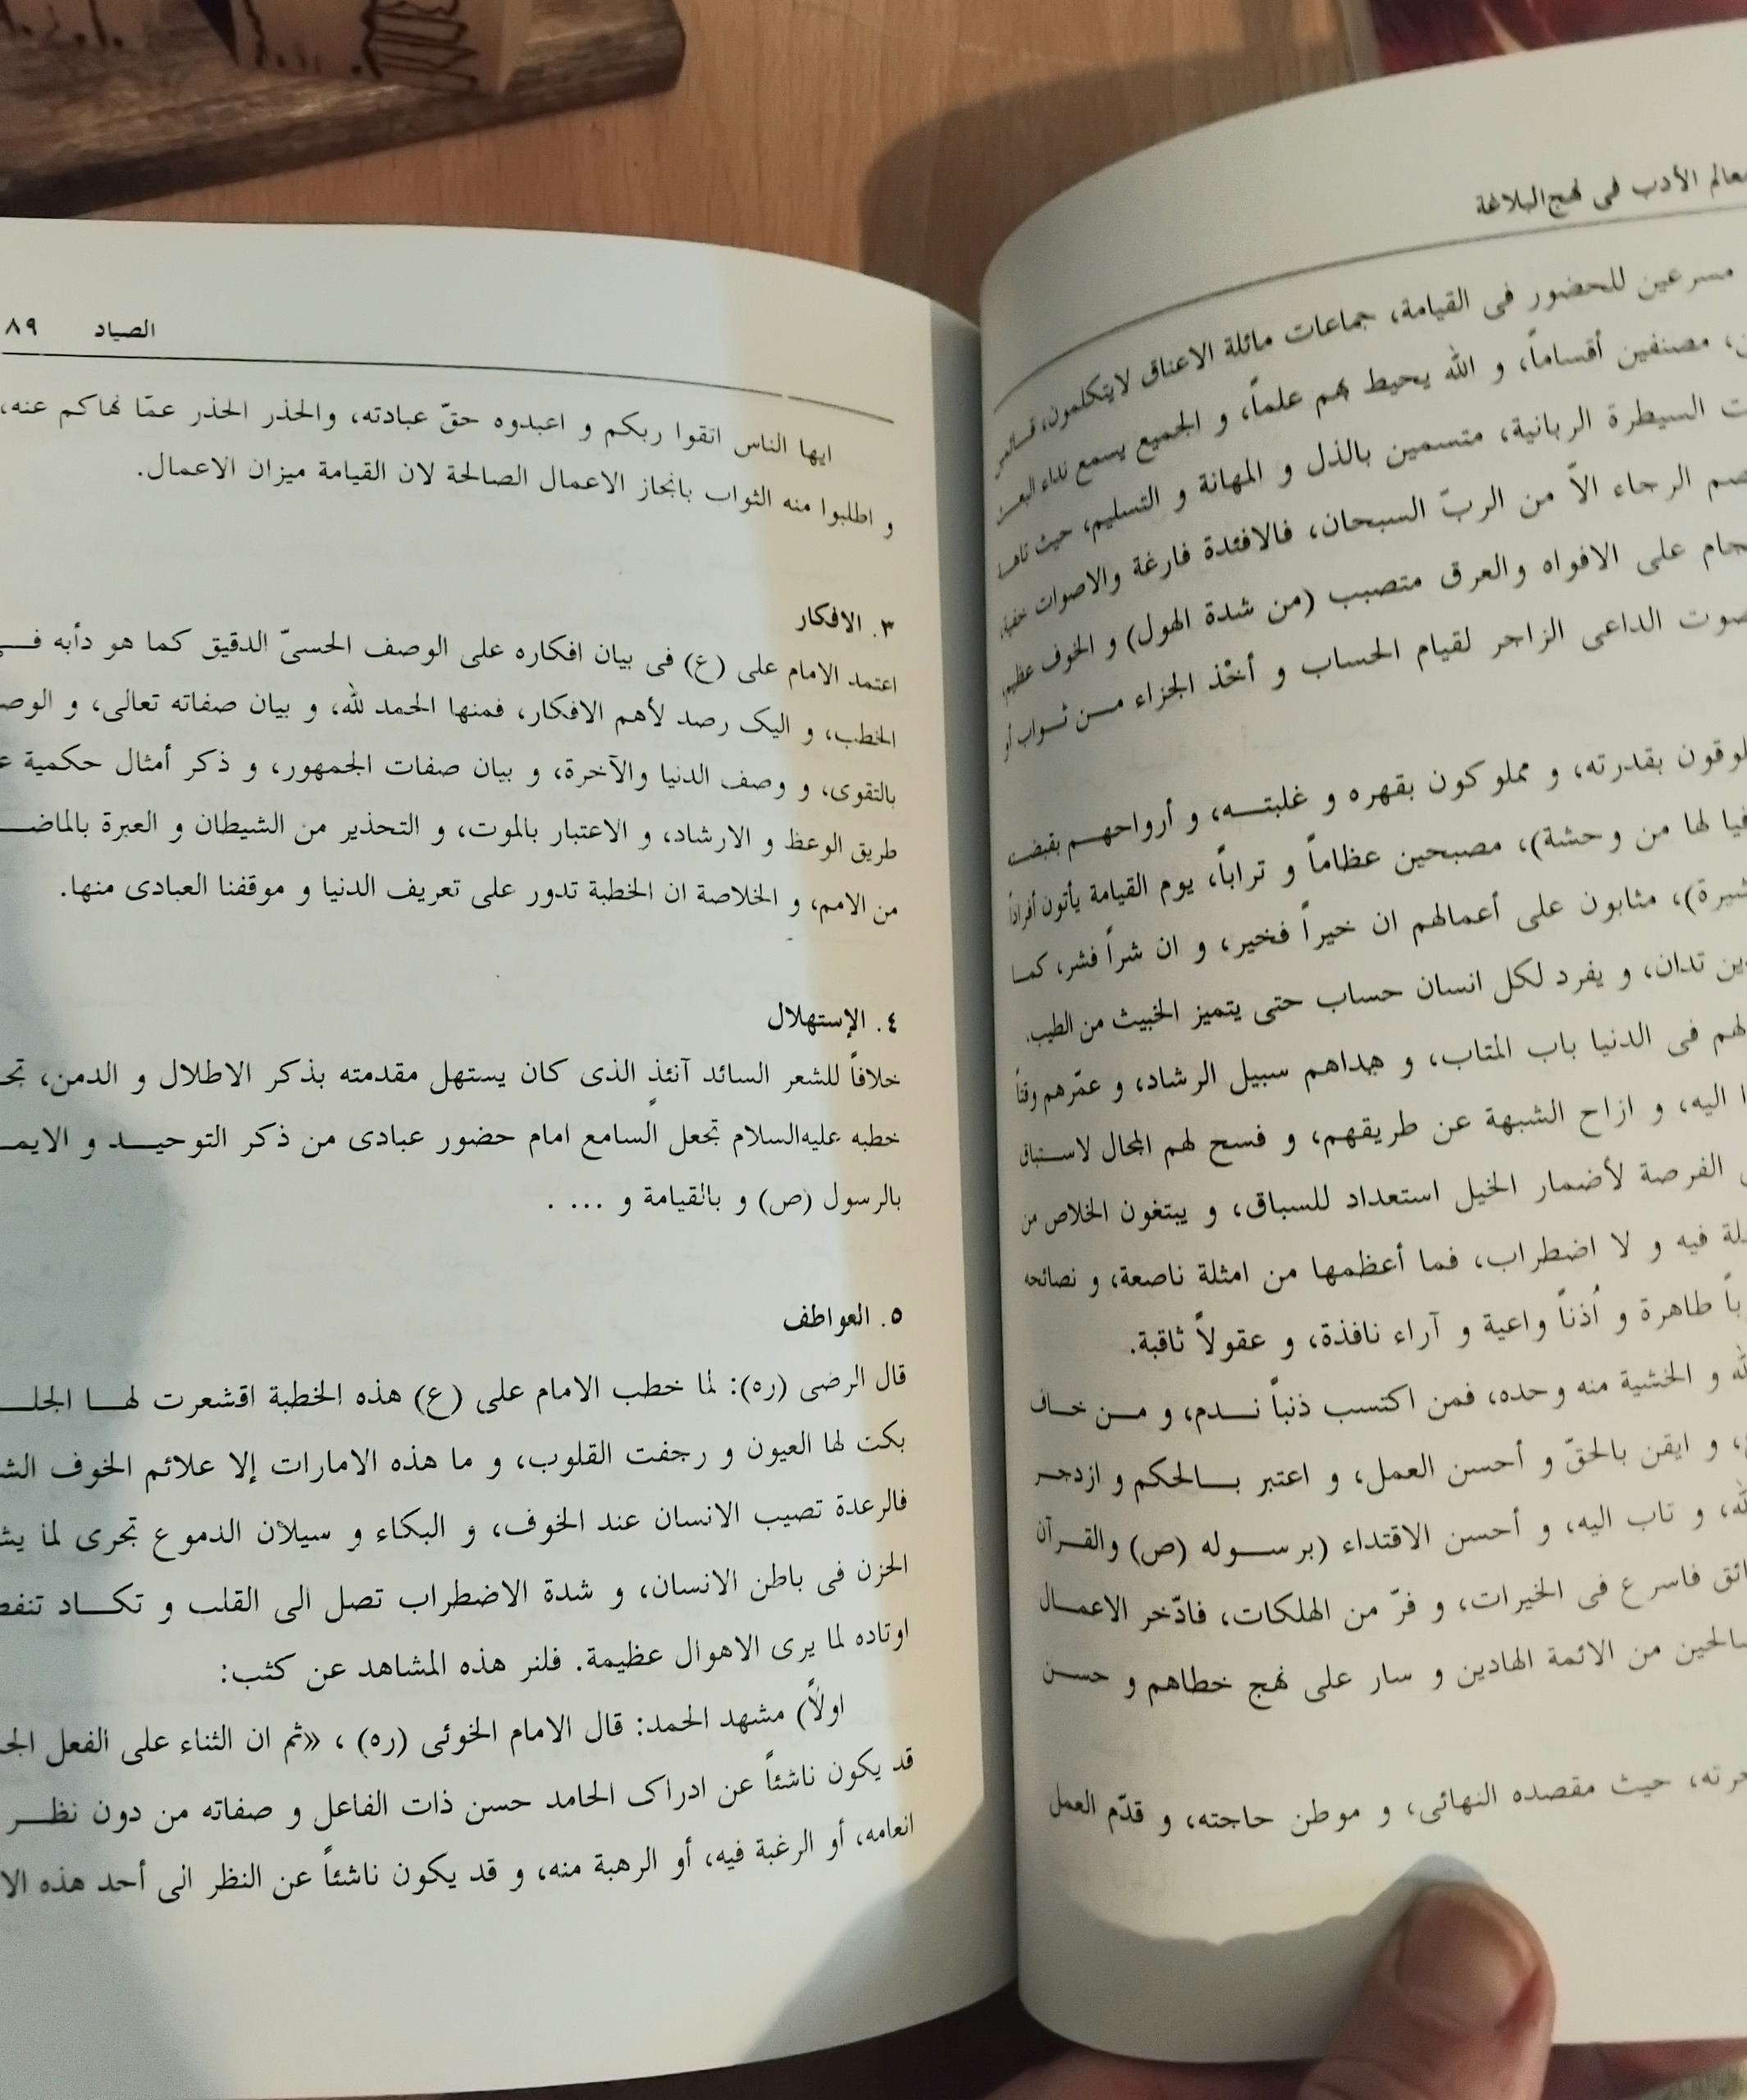 معالم الأدب فى نهج‌البلاغة
مسرعين للحضور فى القيامة، جماعات مائلة الاعناق لايتكلمون،
مصنفين أقساماً، و الله يحيط بهم علماً، و الجميع يسمع نداء
السيطرة الربانية، متسمين بالذل و المهانة و التسليم، حيث
الرجاء الاّ من الربّ السبحان، فالافئدة فارغة والاصوات خفية،
على الافواه والعرق متصبب (من شدة الهول) و الخوف عظيم،
صوت الداعى الزاجر لقيام الحساب و أخْذ الجزاء مـن ثـواب أو
بقدرته، و مملوكون بقهره و غلبتـه، و أرواحهـم
فيا لها من وحشة)، مصبحين عظاماً و تراباً، يوم القيامة يأتون أفراداً
مثابون على أعمالهم ان خيراً فخير، و ان شراً فشر، كما
تدان، و يفرد لكل انسان حساب حتى يتميز الخبيث من الطيب.
لهم فى الدنيا باب المتاب، و هداهم سبيل الرشاد، و عمّرهم وقتاً
اليه، و ازاح الشبهة عن طريقهم، و فسح لهم المجال لاستباق
الفرصة لأضمار الخيل استعداد للسباق، و يبتغون الخلاص من
فيه و لا اضطراب، فما أعظمها من امثلة ناصعة، و نصائحه
طاهرة و أذناً واعية و آراء نافذة، و عقولاً ثاقبة.
و الخشية منه وحده، فمن اكتسب ذنباً نـدم، و مـن خـاف
و ايقن بالحقّ و أحسن العمل، و اعتبر بـالحكم و ازدجـر
و تاب اليه، و أحسن الاقتداء (برسـوله (ص) والقـرآن
فاسرع فى الخيرات، و فرّ من الهلكات، فادّخر الاعمـال
من الائمة الهادين و سار على نهج خطاهم و حسـن
حيث مقصده النهائى، و موطن حاجته، و قدّم العمل
الصياد ٨٩
ايها الناس اتقوا ربكم و اعبدوه حقّ عبادته، والحذر الحذر عمّا نهاكم عنه،
و اطلبوا منه الثواب بانجاز الاعمال الصالحة لان القيامة ميزان الاعمال.
٣. الافكار
اعتمد الامام على (ع) فى بيان افكاره على الوصف الحسىّ الدقيق كما هو دأبه فـى
الخطب، و اليک رصد لأهم الافكار، فمنها الحمد لله، و بيان صفاته تعالى،
بالتقوى، و وصف الدنيا والآخرة، و بيان صفات الجمهور، و ذكر أمثال حكمية
طريق الوعظ و الارشاد، و الاعتبار بالموت، و التحذير من الشيطان و العبرة
من الامم، و الخلاصة ان الخطبة تدور على تعريف الدنيا و موقفنا العبادى منها.
٤. الإستهلال
خلافاً للشعر السائد آنئذٍ الذى كان يستهل مقدمته بذكر الاطلال و الدمن،
خطبه عليه‌السلام تجعل السامع امام حضور عبادى من ذكر التوحيـد و
بالرسول (ص) و بالقيامة و ... .
٥. العواطف
قال الرضى (ره): لما خطب الامام على (ع) هذه الخطبة اقشعرت لهـا
بكت لها العيون و رجفت القلوب، و ما هذه الامارات إلا علائم الخوف
فالرعدة تصيب الانسان عند الخوف، و البكاء و سيلان الدموع تجرى لما
الحزن فى باطن الانسان، و شدة الاضطراب تصل الى القلب و تكـاد
اوتاده لما يرى الاهوال عظيمة. فلنر هذه المشاهد عن كثب:
اولاً) مشهد الحمد: قال الامام الخوئى (ره)، «ثم ان الثناء على الفعل
قد يكون ناشئاً عن ادراک الحامد حسن ذات الفاعل و صفاته من دون نظـر
انعامه، أو الرغبة فيه، أو الرهبة منه، و قد يكون ناشئاً عن النظر الى أحد هذه